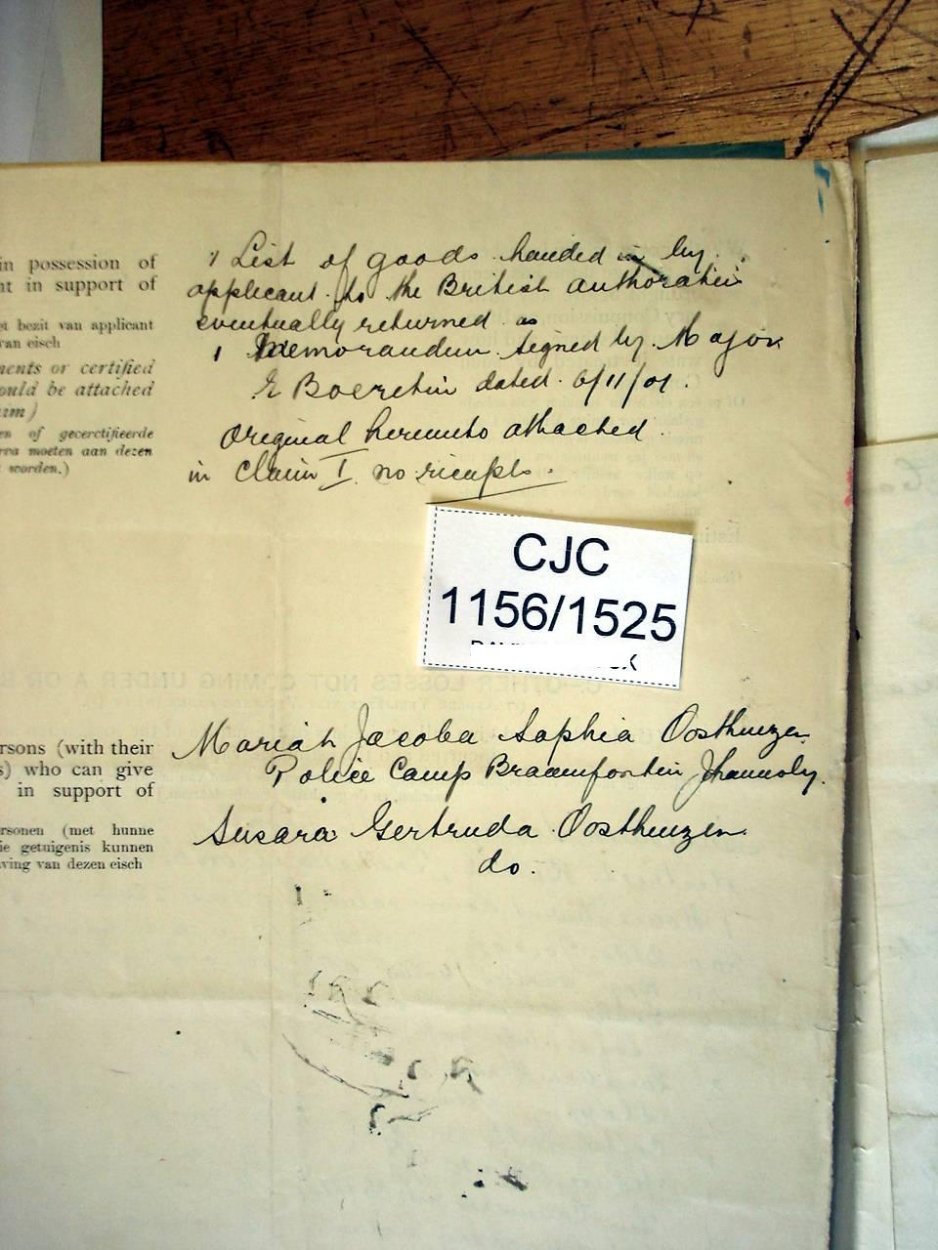 in possession of
nt in support of
et bezit van applicant
van eisch
ments or certified
ould be attached
rm)
en of gecerctifieerde
rra moeten aan dezen
worden.)
1 List of goods handed in by
applicant to the British authoraties
eventually returned as
1 Memorandum signed by Major
E dated 6/11/01.
Original hereunto attached
in Claim I no ricepts.
CJC
1156/1525
OTHER LOSSES NOT COMING UNDER A OR B
rsons (with their
s) who can give
in support of
rsonen (met hunne
ie getuigenis kunnen
ving van dezen eisch
Mariah Jacoba Sophia Oosthuizen
Police Camp Braamfontein Jhannsbg.
Susara Gertruda Oosthuizen
do.